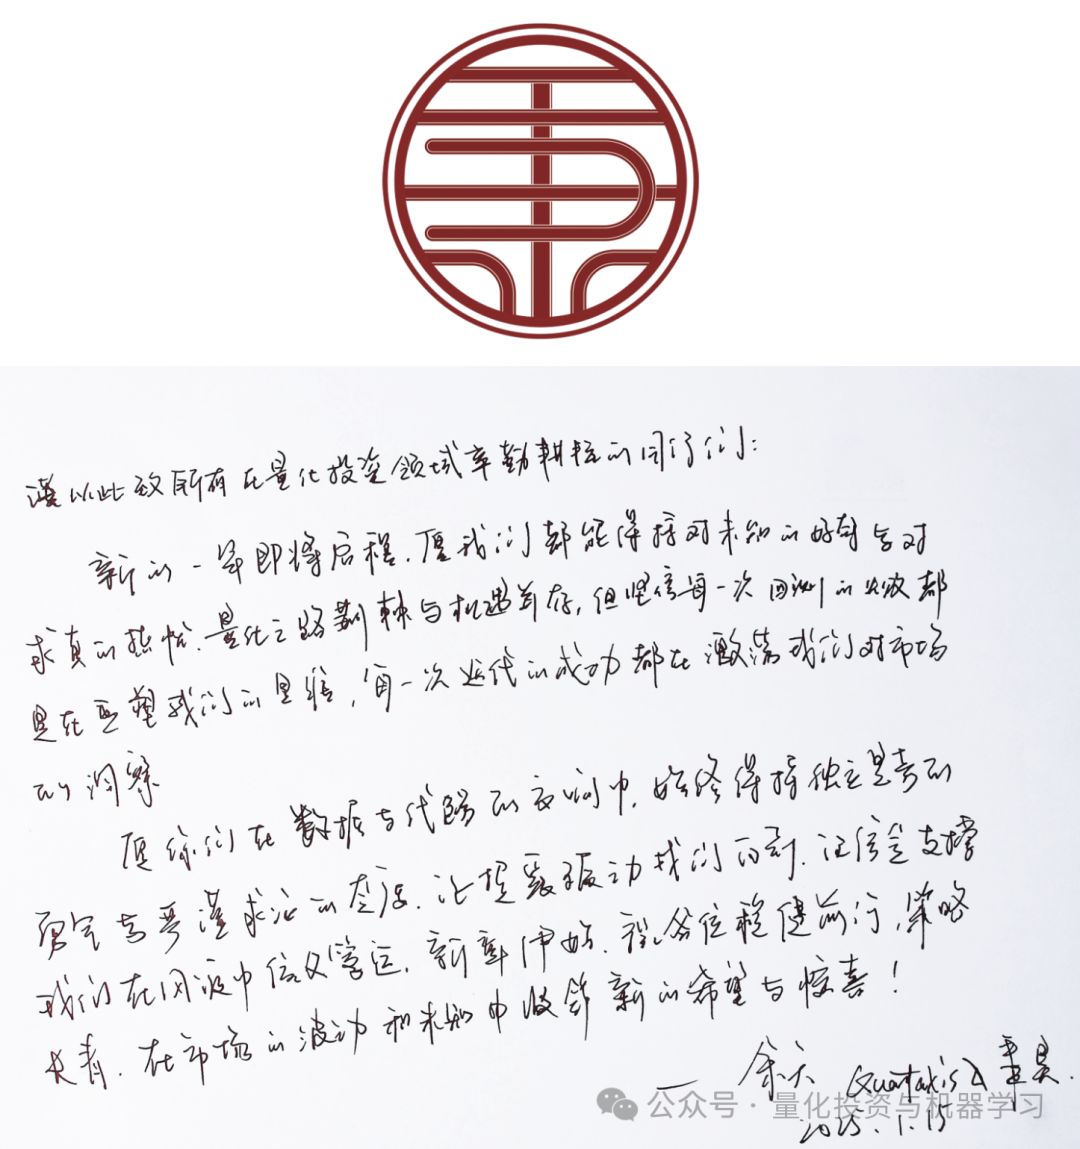 谨以此致所有在量化投资领域辛勤耕耘的同行们:
新的一年即将启程,愿我们都能保持对未知的好奇与对
求真的热忱。量化之路荆棘与机遇并存,但坚信每一次回测的失败都
是在重塑我们的思维,每一次迭代的成功都在激荡我们对市场
的洞察
愿你们在数据与代码的夜幕中,始终保持独立思考的
勇气与严谨求证的态度。让 我们的 ,让信念支撑
我们在风波中 。新章伊始,祝各位稳健前行,策略
长青,在市场的波动和未知中收获新的希望与惊喜!
— 余天 Quantaxis
公众号 · 量化投资与机器学习
2025.1.15